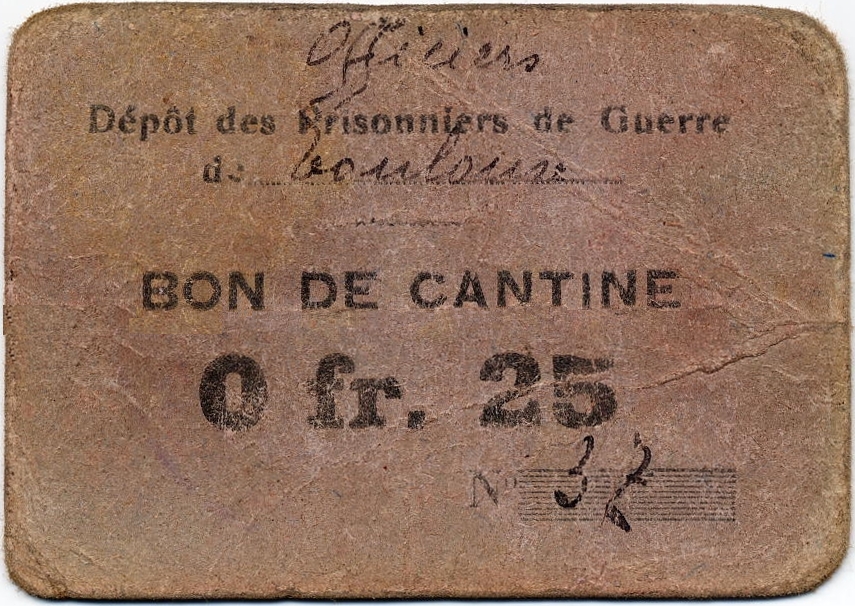 Officiers
Dépôt des Prisonniers de Guerre
de Toulouse
BON DE CANTINE
0 fr. 25
No 37